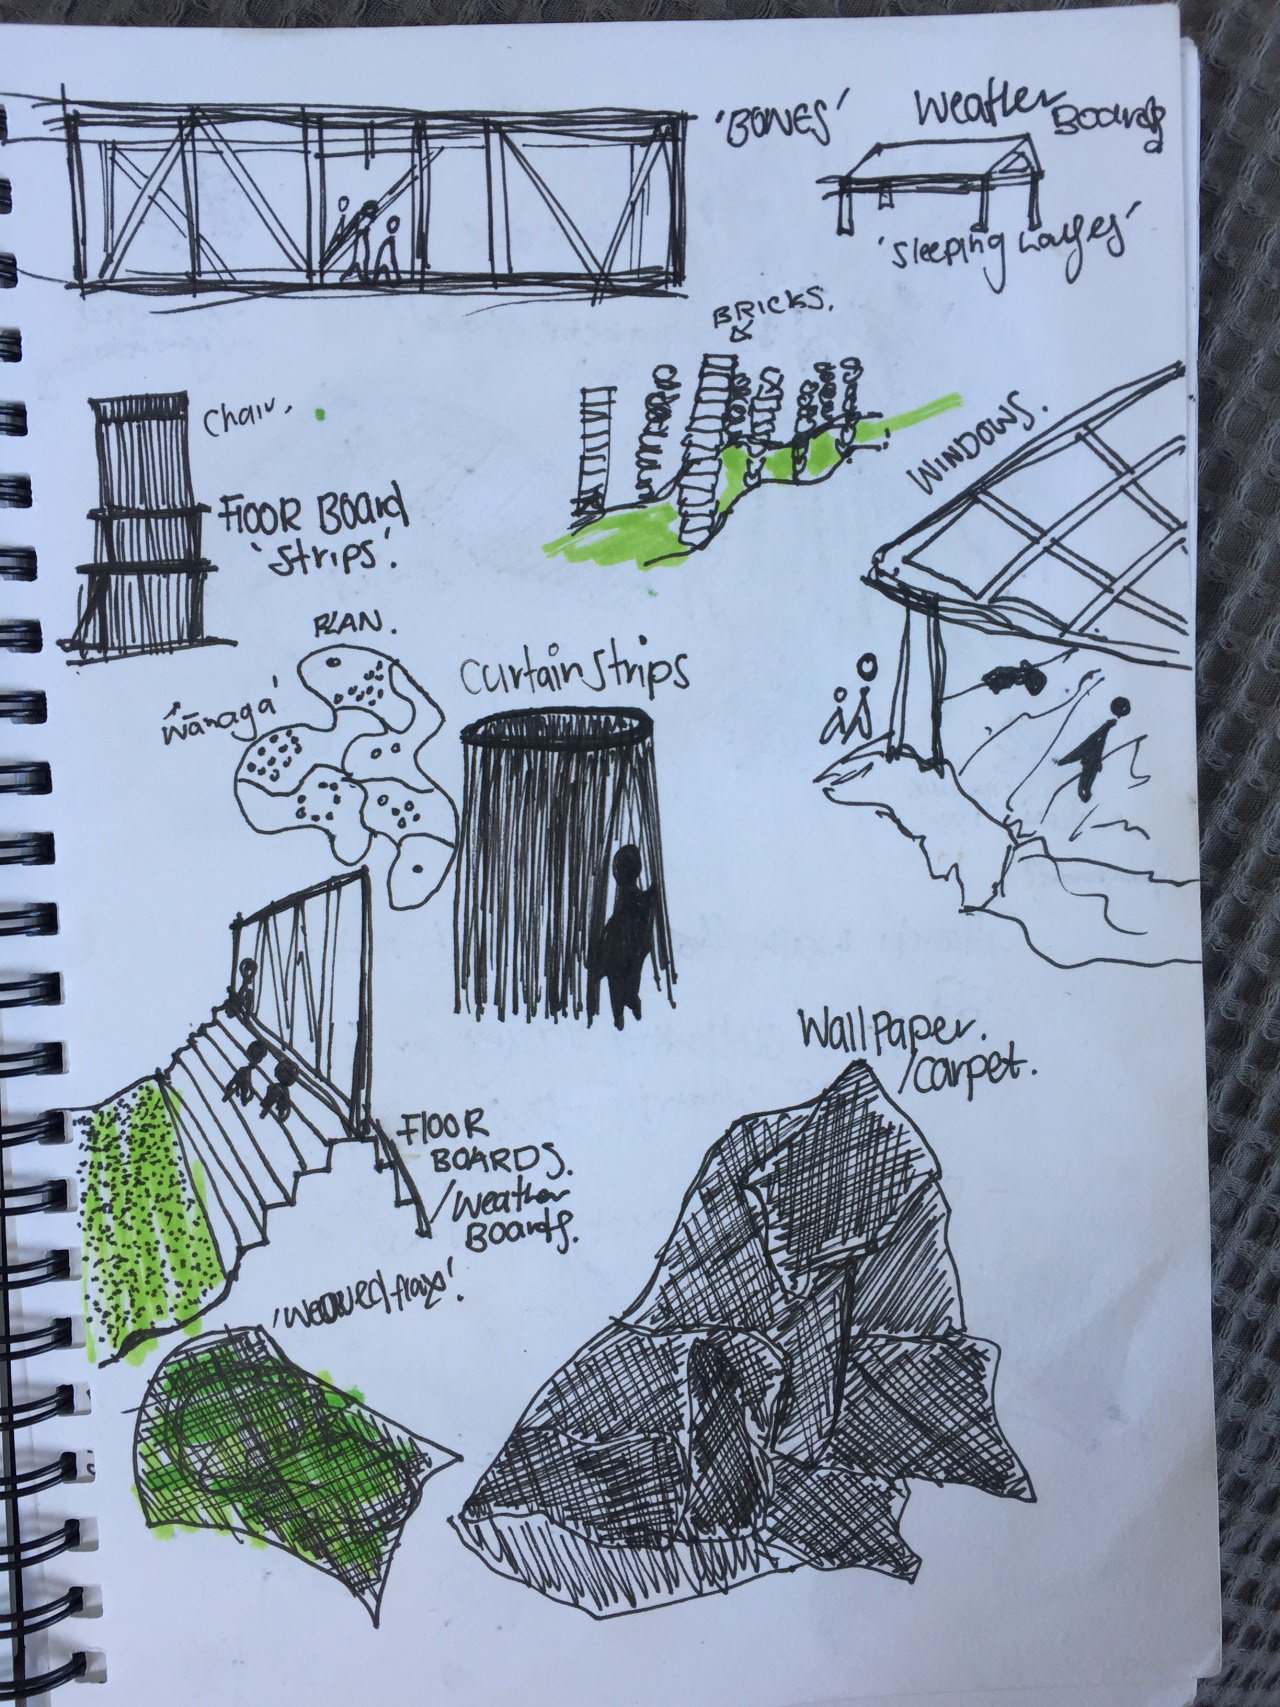 'BONES'
Weather
Boards
'Sleeping
BRICKS.
Chair.
WINDOWS.
FlOOR Board
'Strips'.
PLAN.
'wānaga'
Curtain strips
Wallpaper.
/carpet.
FlOOR
BOARDS.
/Weather
Boards.